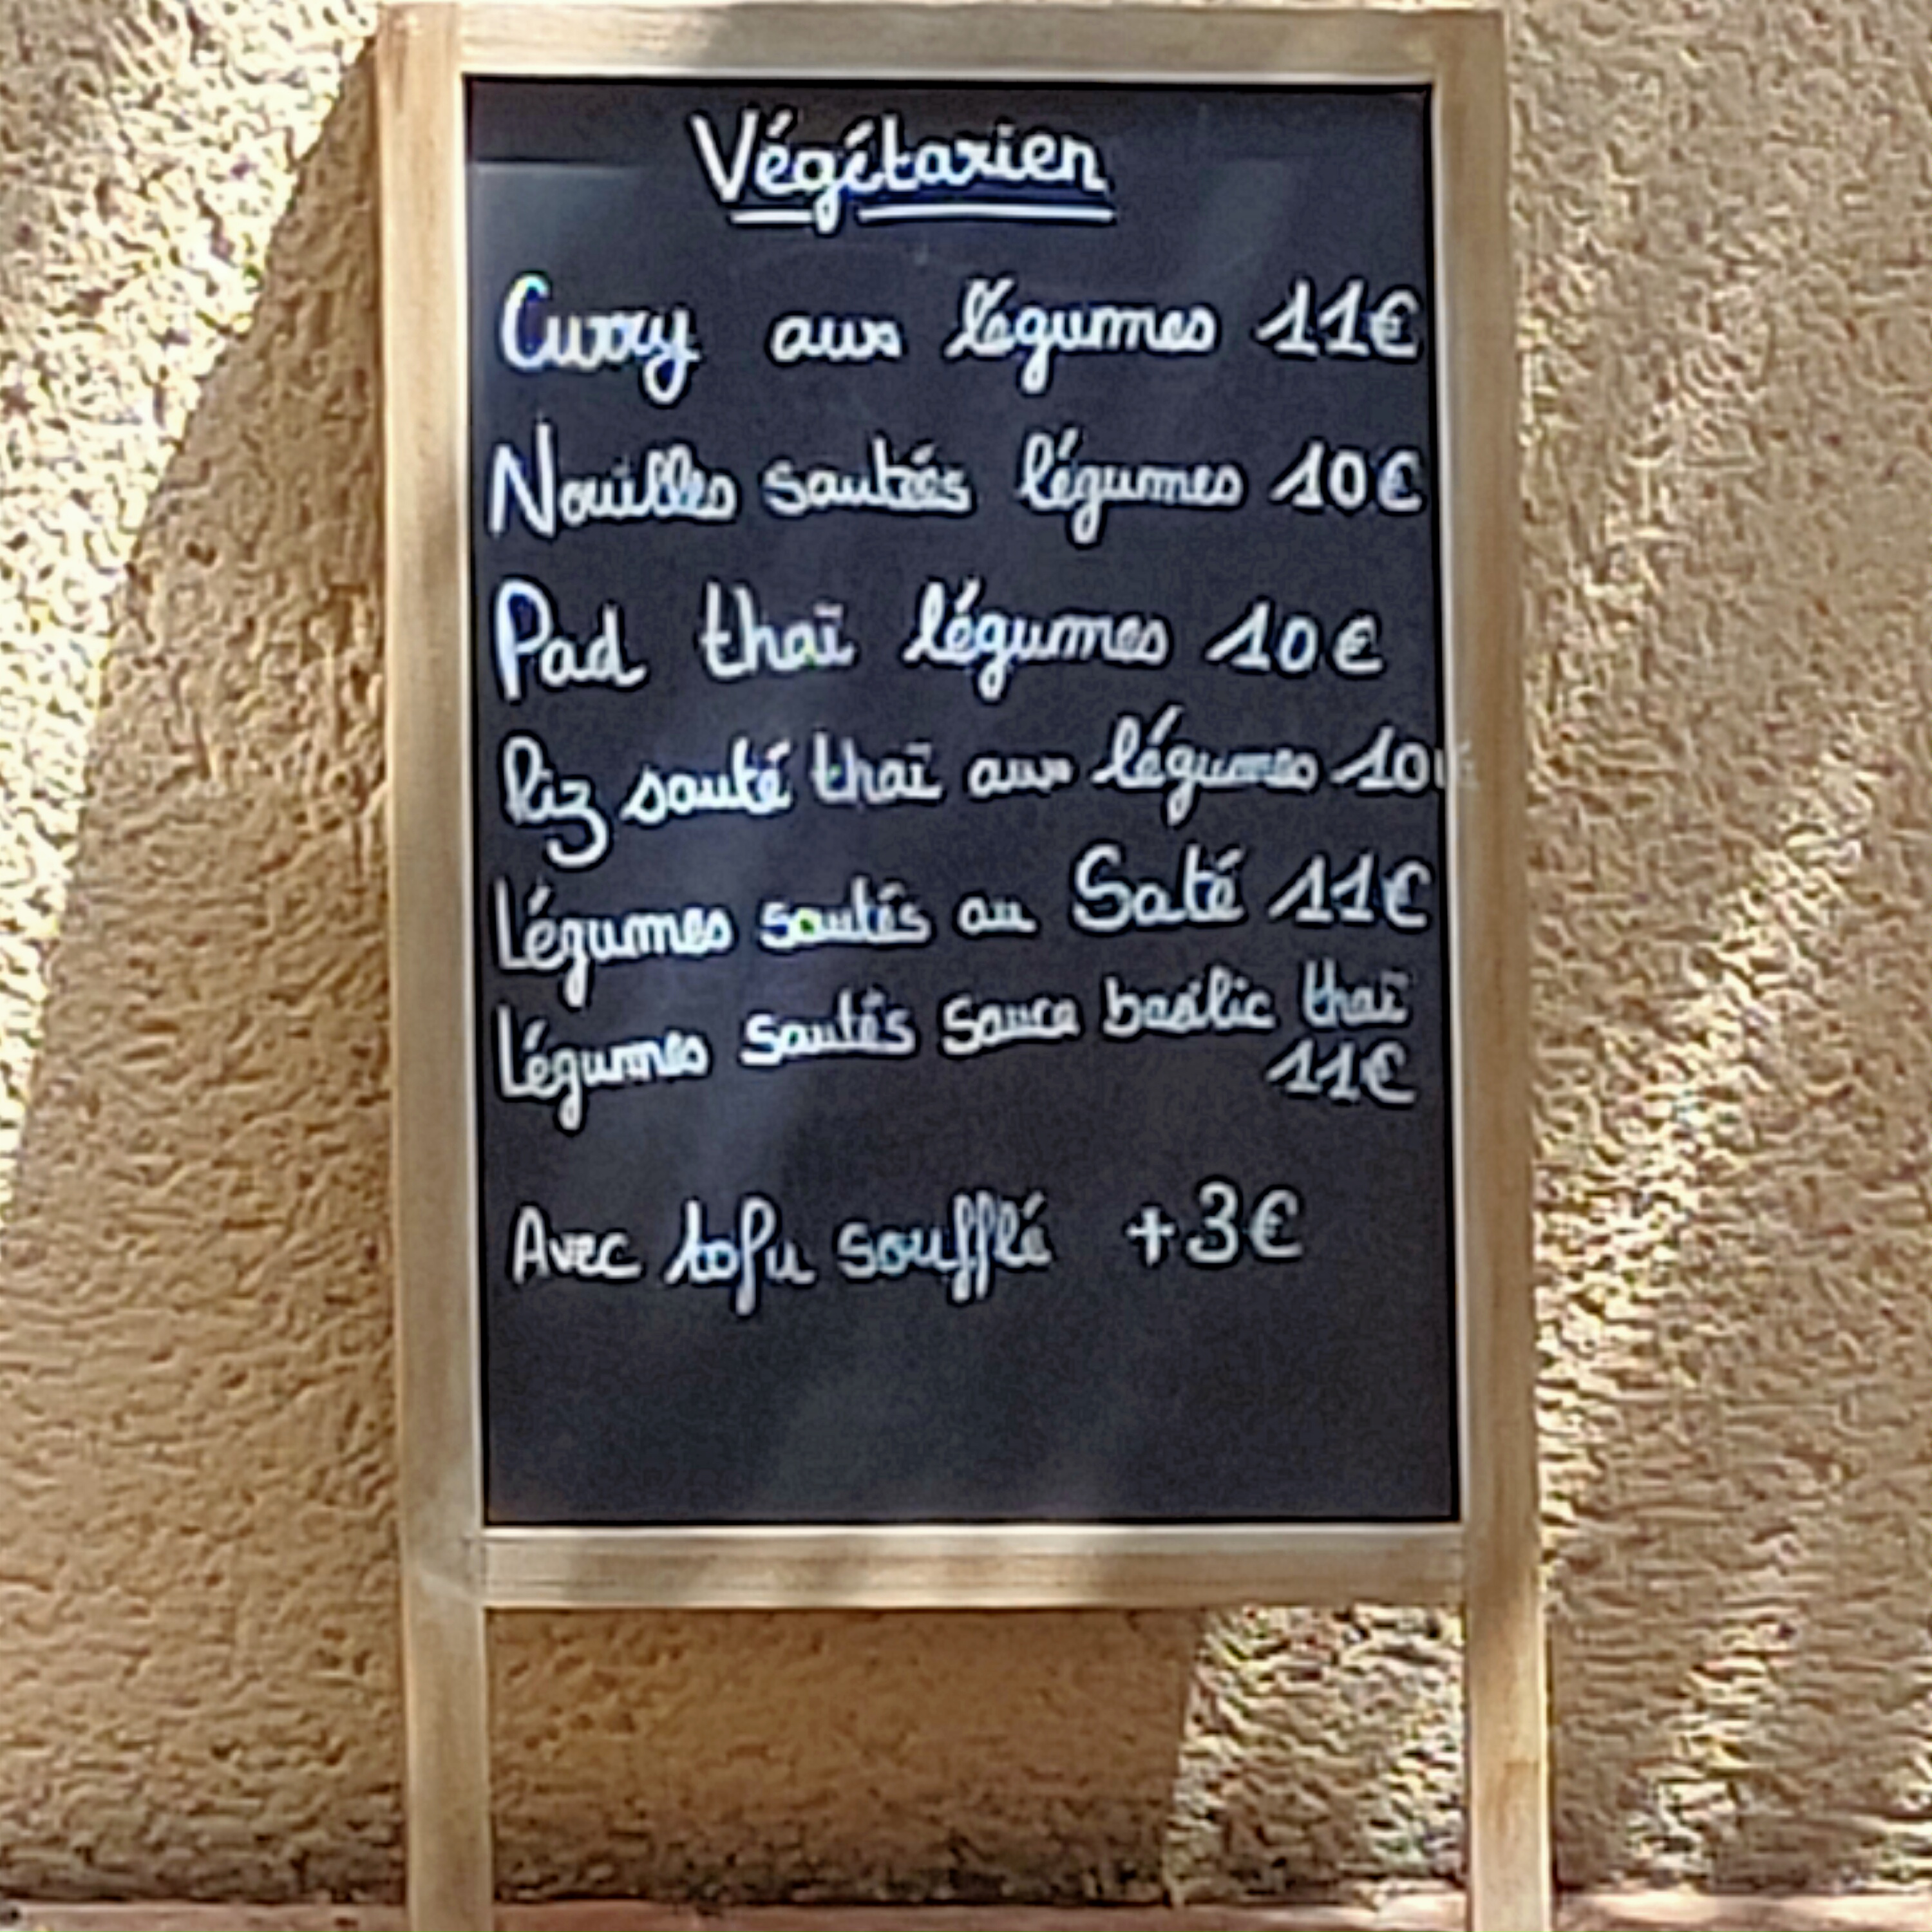 Végétarien
Curry aux légumes 11€
Nouilles sautés légumes 10€
Pad thaï légumes 10€
Riz sauté thaï aux légumes 10€
Légumes sautés au Saté 11€
Légumes sautés sauce basilic thaï
11€
Avec tofu soufflé +3€